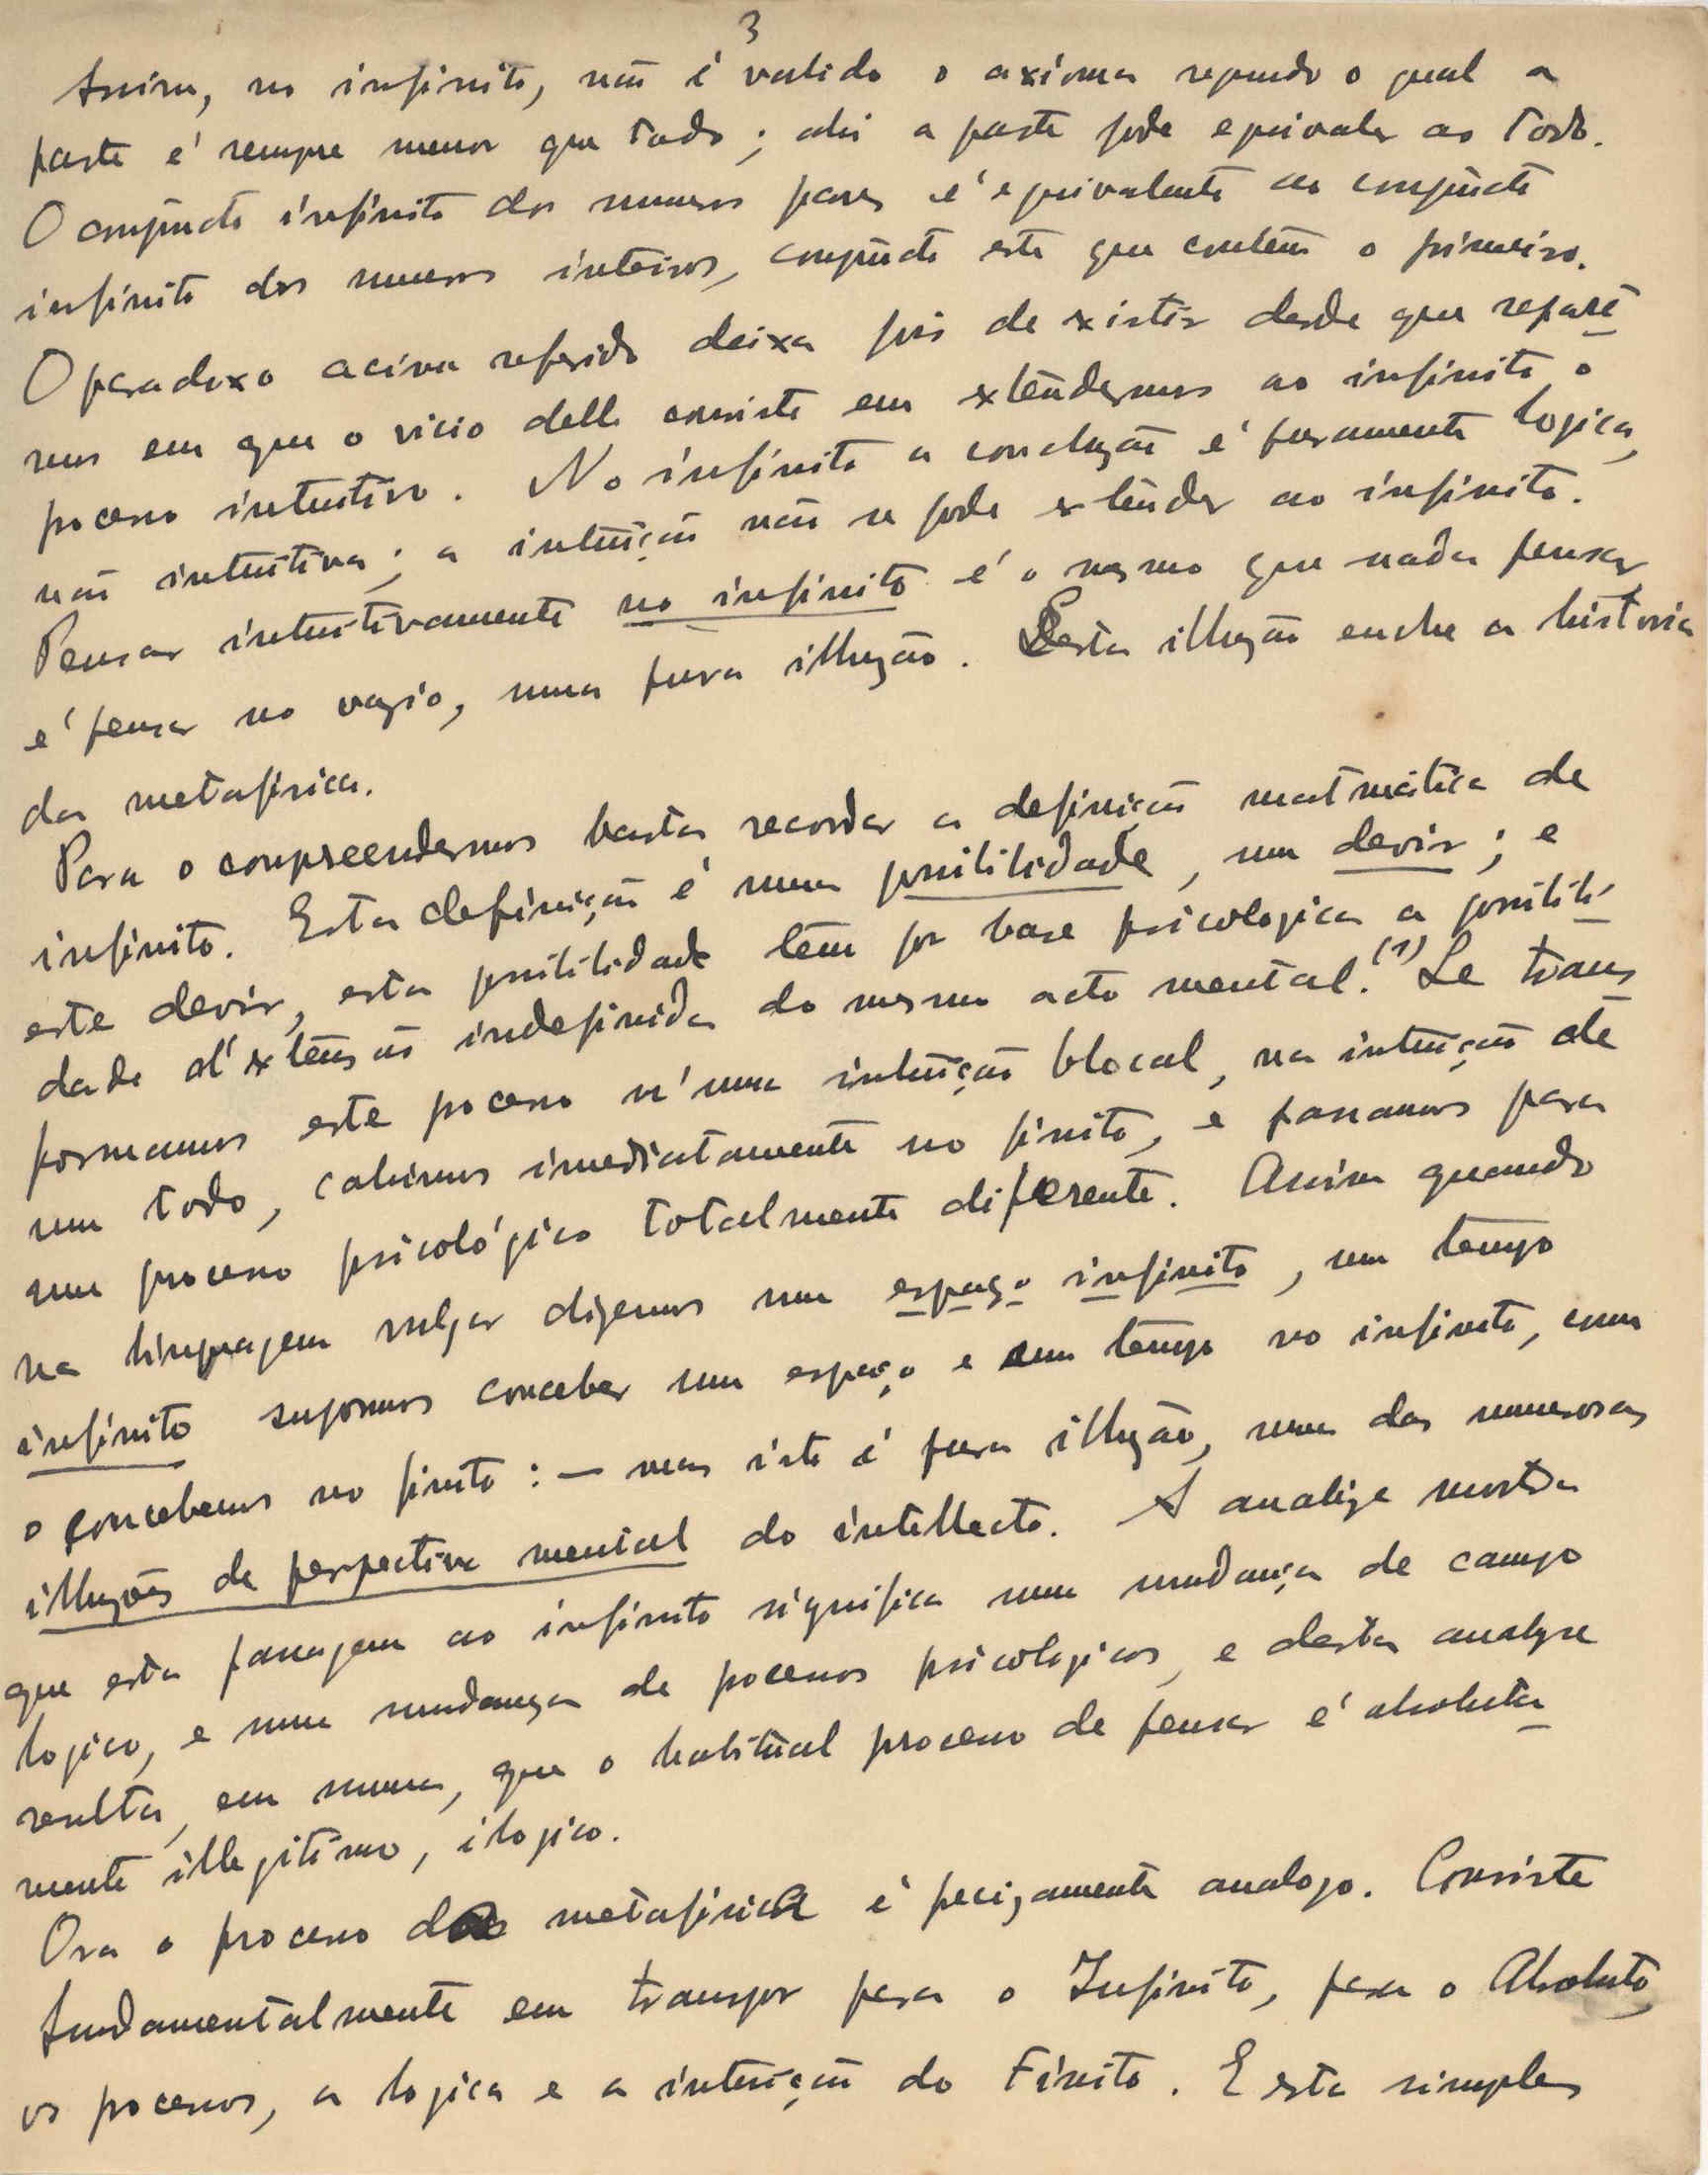 3
Assim, no infinito, não é valido o axioma segundo o qual a
parte é sempre menor que todo; ahi a parte pode equivaler ao todo.
O conjuncto infinito dos numeros pares é equivalente ao conjuncto
infinito dos numeros inteiros, conjuncto este que contém o primeiro.
O paradoxo acima referido deixa pois de existir desde que repare-
mos em que o vicio delle consiste em extendermos ao infinito o
processo intuitivo. No infinito a concluzão é puramente logica,
não intuitiva; a intuição não se pode extender ao infinito.
Pensar intuitivamente no infinito é o mesmo que nada pensar,
é pensar no vazio, uma pura illuzão. Desta illuzão enche a historia
da metafisica.
Para o compreendermos basta recordar a definição matmática de
infinito. Esta definição é uma possibilidade, um devir; e
este devir, esta possibilidade têm por base psicologica a possibili-
dade d'extensão indefinida do mesmo acto mental.(1) Se trans
formamos este processo n'uma intuição blocal, na intuição de
um todo, cahimos imediatamente no finito, e passamos para
um processo psicológico totalmente diferente. Assim quando
na linguagem vulgar dizemos um espaço infinito, um tempo
infinito supomos conceber um espaço e um tempo no infinito, como
o concebemos no finito: — mas isto é pura illuzão, uma das numerosas
illuzões de perspectiva mental do intellecto. A analize mostra
que esta passagem ao infinito significa uma mudança de campo
logico, e uma mudança de processos psicologicos, e desta analyse
resulta, em suma, que o habitual processo de pensar é absoluta-
mente illegitimo, ilogico.
Ora o processo da metafisica é precizamente analogo. Consiste
fundamentalmente em transpor para o Infinito, para o Absoluto,
os processos, a logica e a intuição do Finito. E esta simples